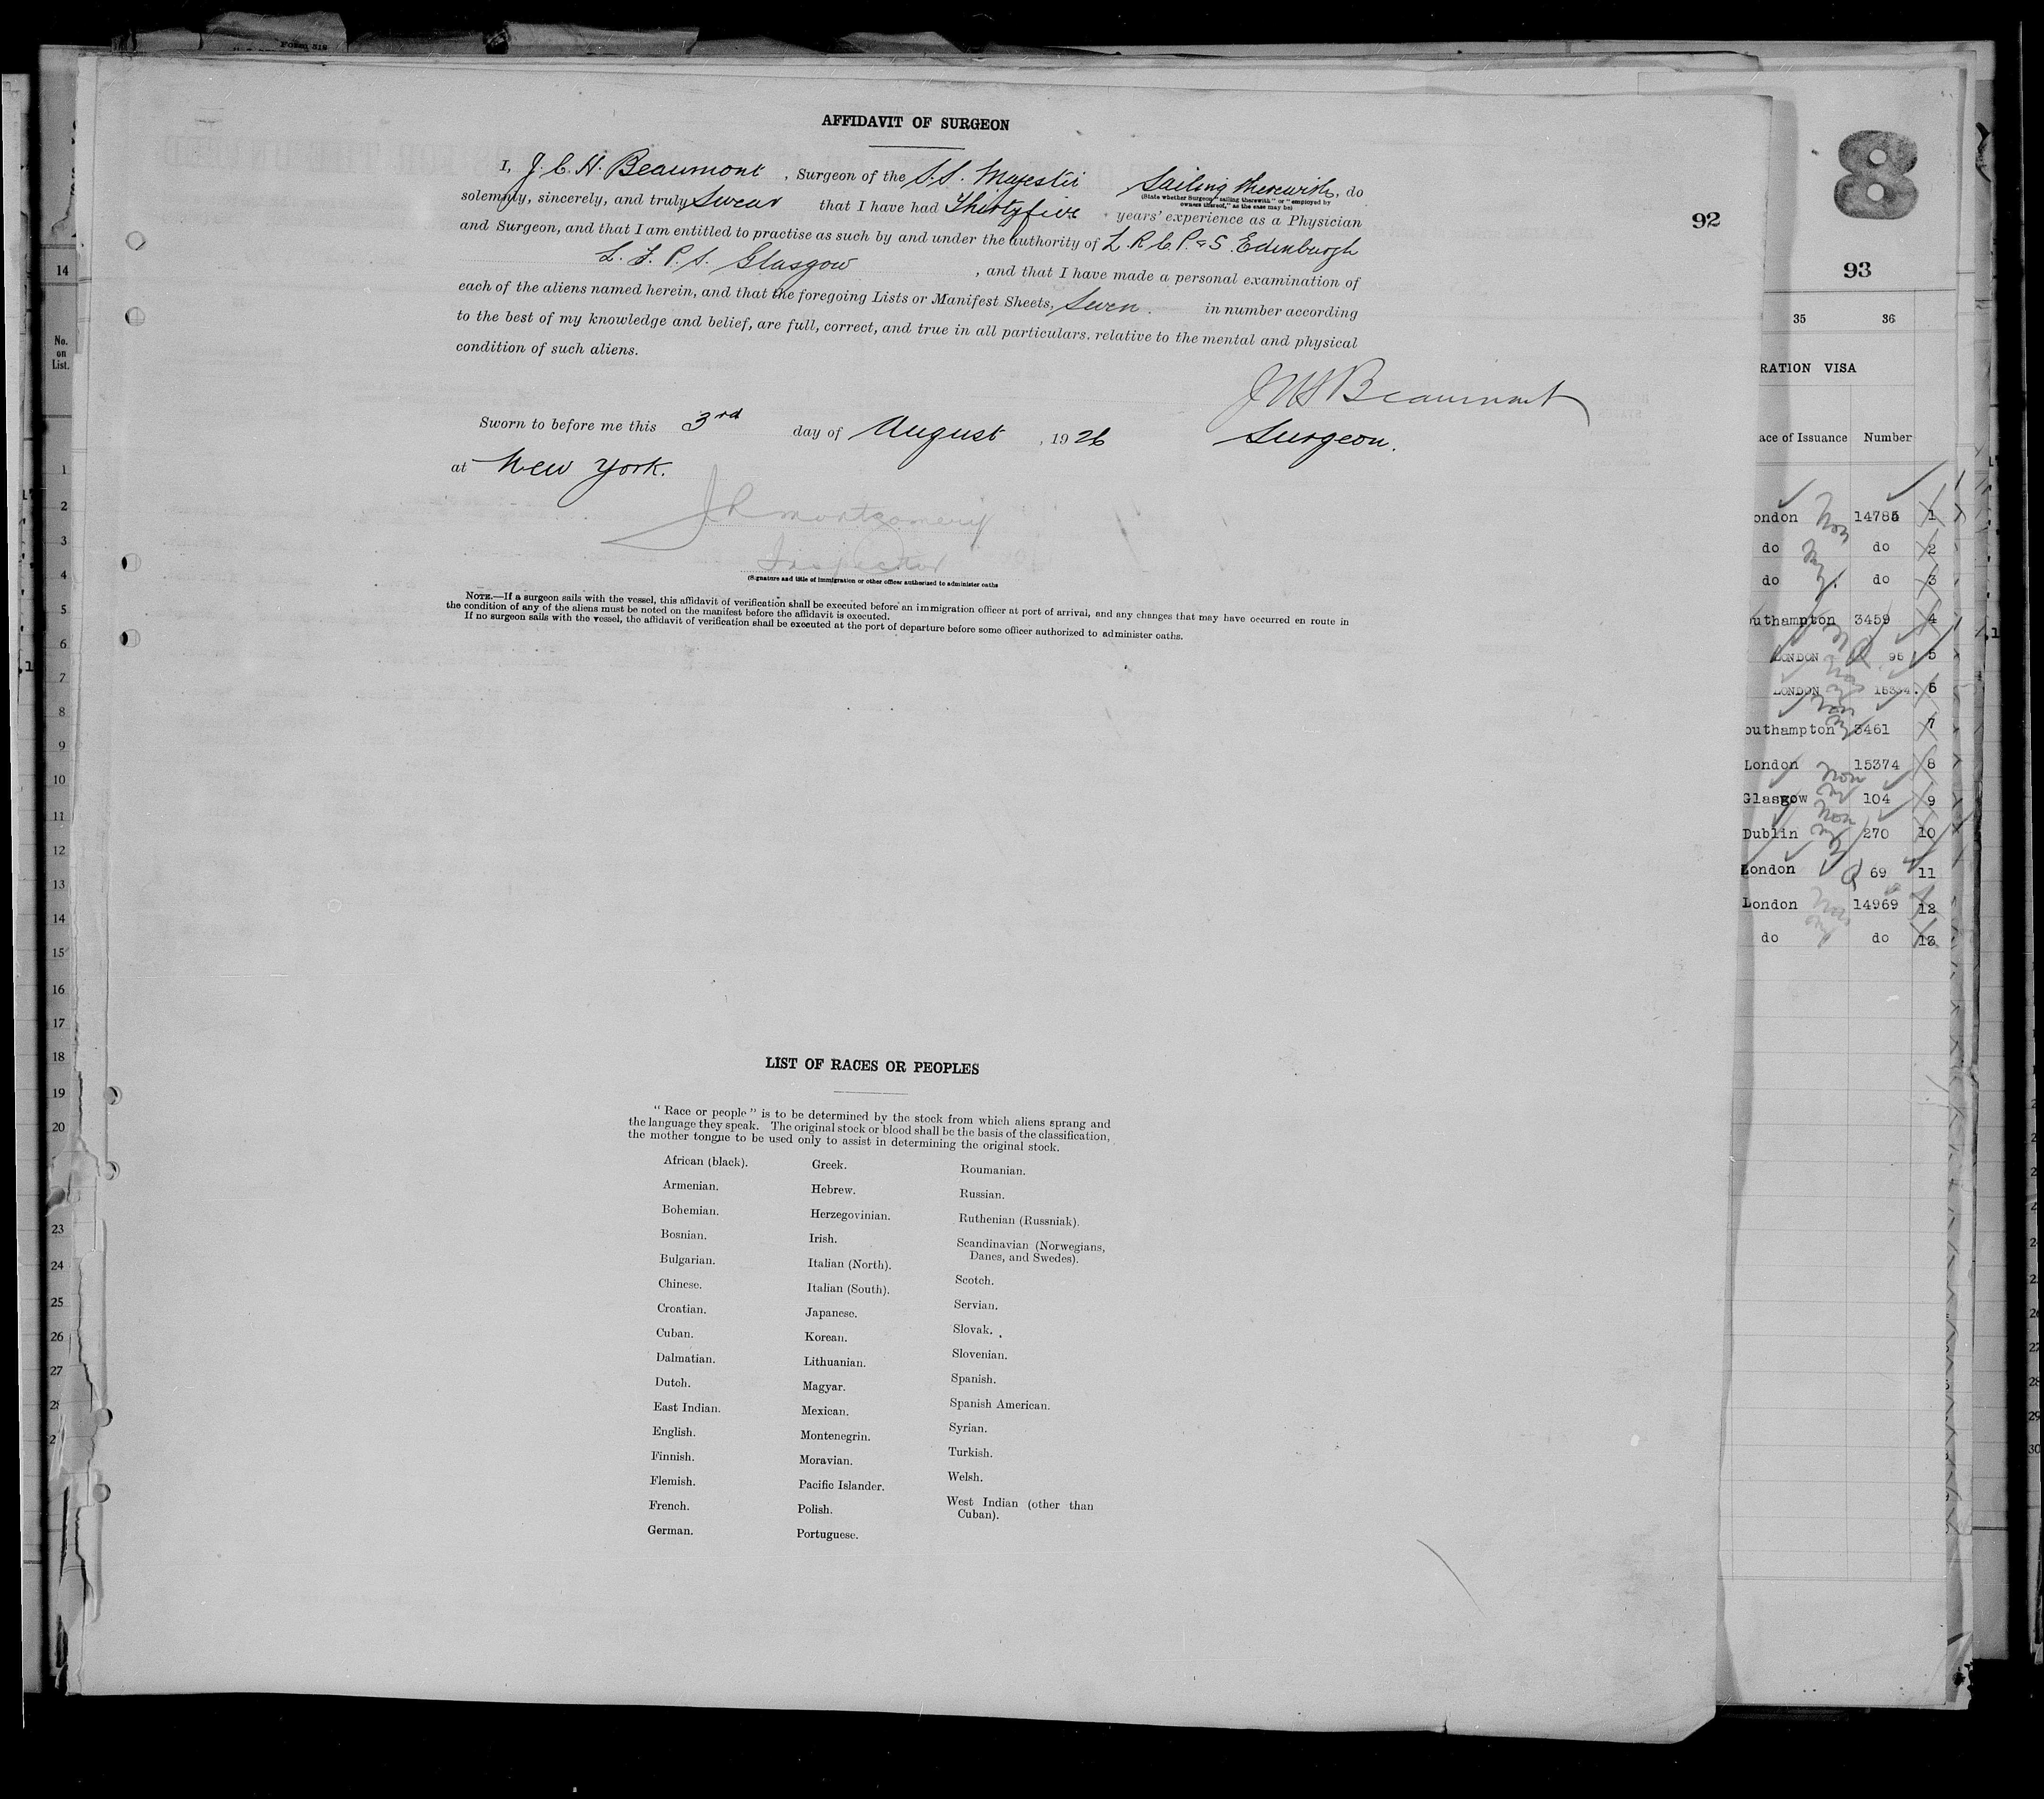 Form 519
AFFIDAVIT OF SURGEON
I, J. C. H. Beaumont, Surgeon of the S.S. Majestic Sailing therewith, do
(State whether Surgeon "sailing therewith" or "employed by
owners thereof," as the case may be)
solemnly, sincerely, and truly Swear that I have had Thirtyfive years' experience as a Physician
and Surgeon, and that I am entitled to practise as such by and under the authority of L.R.C.P. & S. Edinburgh
L. F. P. S. Glasgow, and that I have made a personal examination of
each of the aliens named herein, and that the foregoing Lists or Manifest Sheets, Seven. in number according
to the best of my knowledge and belief, are full, correct, and true in all particulars, relative to the mental and physical
condition of such aliens.
J C H Beaumont
Surgeon.
Sworn to before me this 3rd day of August, 1926
at New York.
J R Montgomery
Inspector
(Signature and title of immigration or other officer authorized to administer oaths
NOTE.—If a surgeon sails with the vessel, this affidavit of verification shall be executed before an immigration officer at port of arrival, and any changes that may have occurred en route in
the condition of any of the aliens must be noted on the manifest before the affidavit is executed.
If no surgeon sails with the vessel, the affidavit of verification shall be executed at the port of departure before some officer authorized to administer oaths.
LIST OF RACES OR PEOPLES
"Race or people" is to be determined by the stock from which aliens sprang and
the language they speak. The original stock or blood shall be the basis of the classification,
the mother tongue to be used only to assist in determining the original stock.
African (black).
Armenian.
Bohemian.
Bosnian.
Bulgarian.
Chinese.
Croatian.
Cuban.
Dalmatian.
Dutch.
East Indian.
English.
Finnish.
Flemish.
French.
German.
Greek.
Hebrew.
Herzegovinian.
Irish.
Italian (North).
Italian (South).
Japanese.
Korean.
Lithuanian.
Magyar.
Mexican.
Montenegrin.
Moravian.
Pacific Islander.
Polish.
Portuguese.
Roumanian.
Russian.
Ruthenian (Russniak).
Scandinavian (Norwegians,
Danes, and Swedes).
Scotch.
Servian.
Slovak.
Slovenian.
Spanish.
Spanish American.
Syrian.
Turkish.
Welsh.
West Indian (other than
Cuban).
92
8
93
35 36
RATION VISA
ace of Issuance Number
ondon 14785 1
do do 2
do do 3
outhampton 3459 4
LONDON 95 5
LONDON 15334. 6
outhampton 3461 7
London 15374 8
Glasgow 104 9
Dublin 270 10
London 69 11
London 14969 12
do do 13
14
No.
on
List.
1
2
3
4
5
6
7
8
9
10
11
12
13
14
15
16
17
18
19
20
23
24
25
26
27